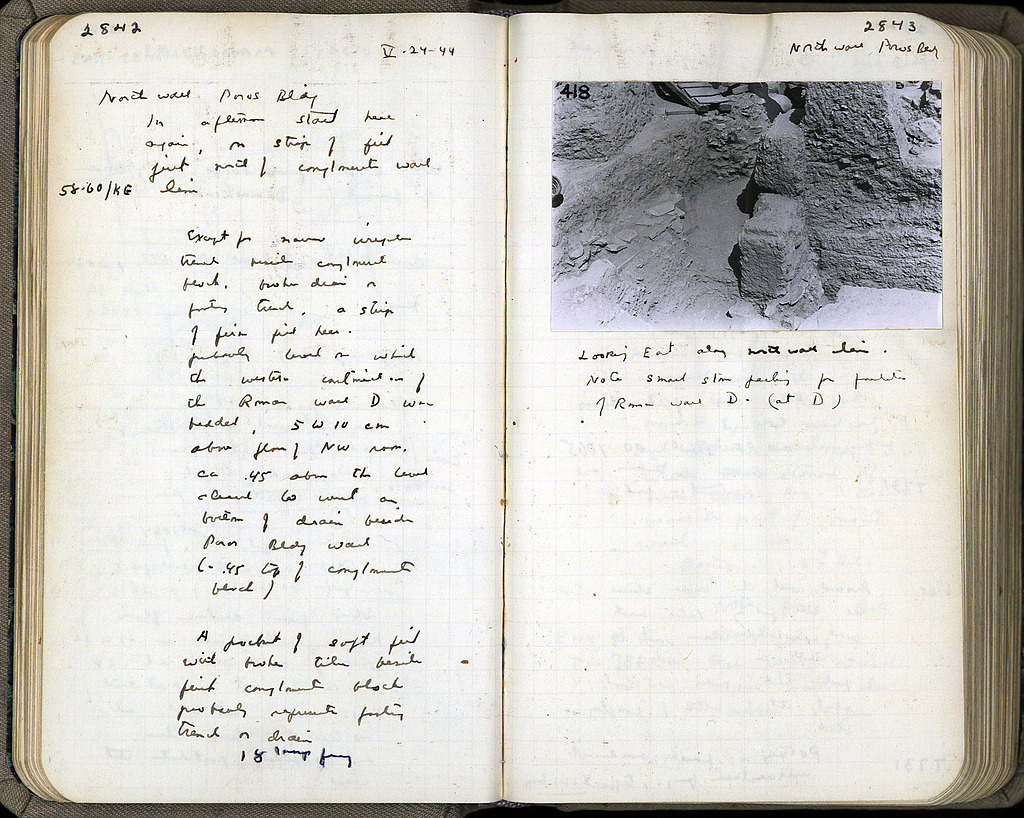 2842
V-24-44
North wall Poros Bldg
In afternoon start here
again, on strip of fill
just north of conglomerate wall
58-60/KE line
Except for narrow irregular
trench beside conglomerate
block, broken drain or
footing trench, a strip
of firm fill here.
probably level on which
the western continuation of
the Roman wall D was
bedded, 5 to 10 cm
above floor of NW room,
ca .45 above the level
cleared to west as
bottom of drain beside
Poros Bldg wall
(- .45 top of conglomerate
block)
A pocket of soft fill
with broken tiles beside
first conglomerate block
probably represents footing
trench or drain
18 lamp frag
2843
North wall Poros Bldg
418
Looking East along north wall line.
Note small stone packing for foundation
of Roman wall D. (at D)